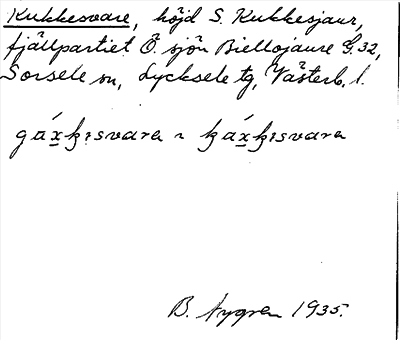 Kukkesvare, höjd S. Kukkesjaur,
fjällpartiet Ö. sjön Biellojaure G. 32,
Sorsele sn, Lycksele tg, Västerb. l.
B. Nygren 1935.